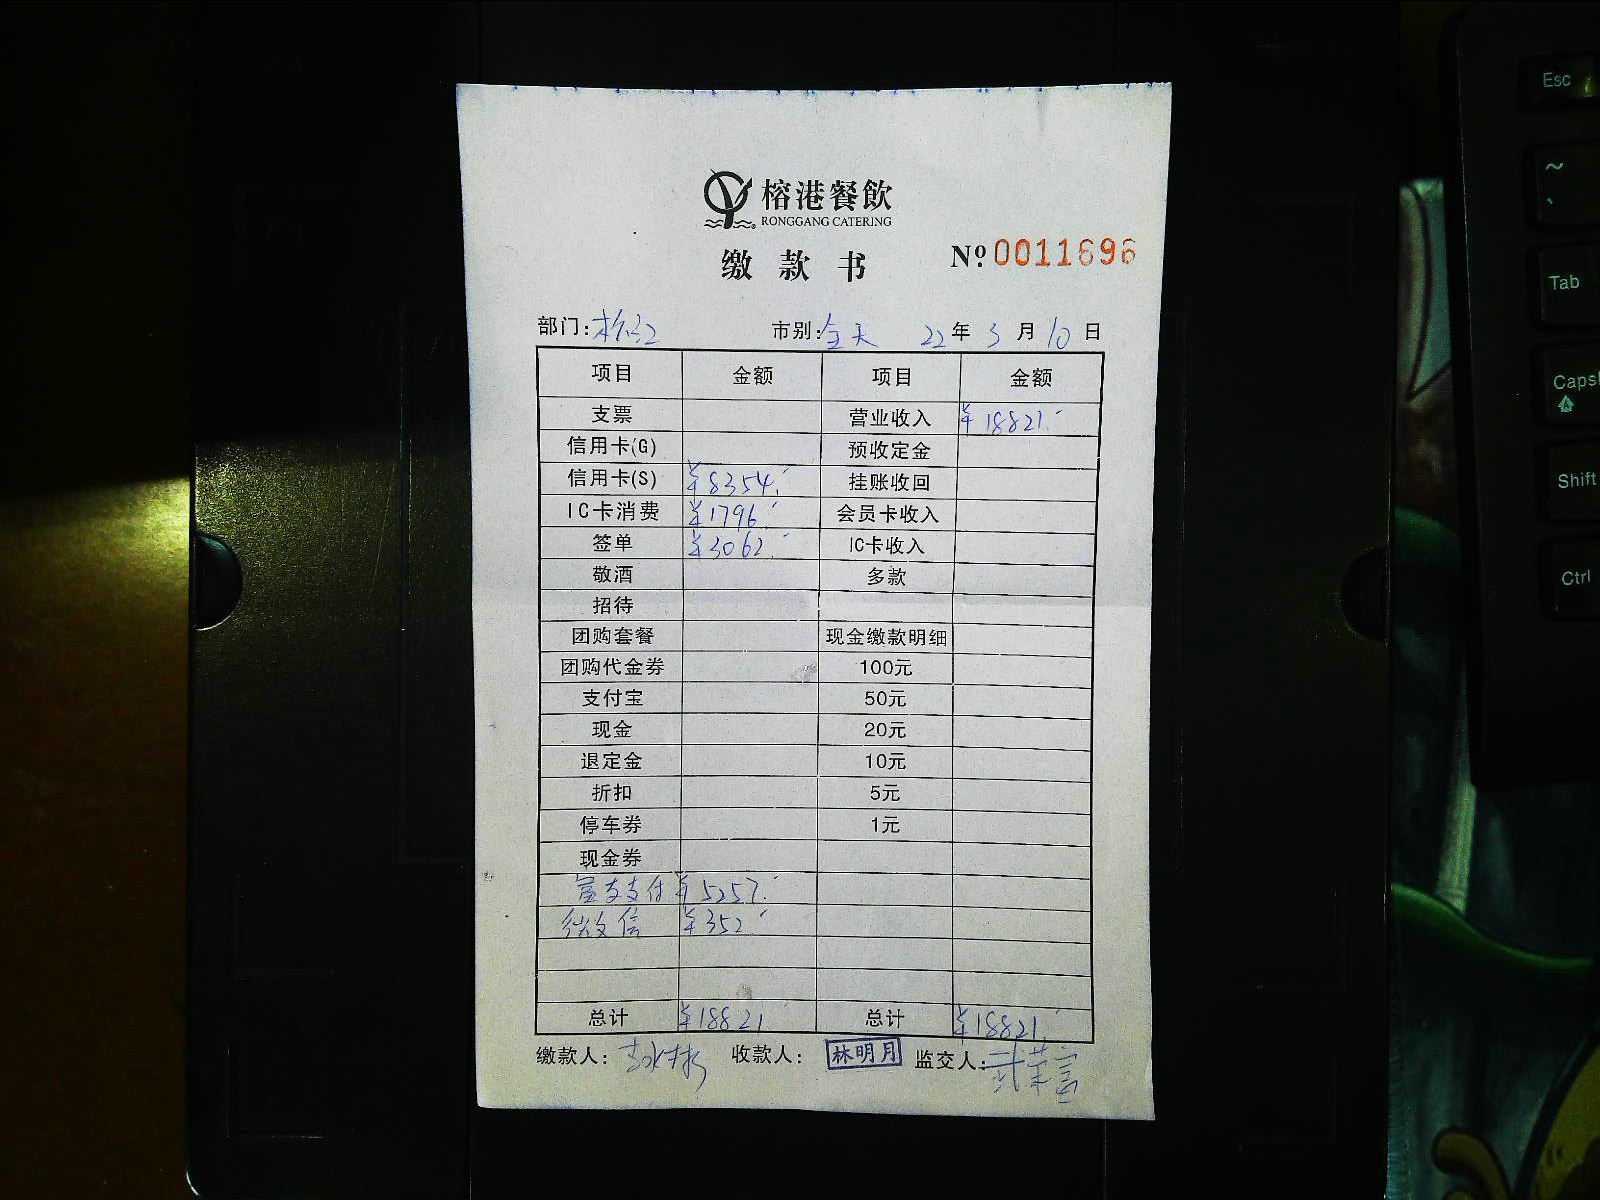 榕港餐飲
RONGGANG CATERING
缴款书
Nº 0011696
部门: 市别:全天 22年3月10日
项目 金额 项目 金额
支票 营业收入 ¥18821.-
信用卡(G) 预收定金
信用卡(S) ¥8354.- 挂账收回
IC卡消费 ¥1796.- 会员卡收入
签单 ¥3062.- IC卡收入
敬酒 多款
招待
团购套餐 现金缴款明细
团购代金券 100元
支付宝 50元
现金 20元
退定金 10元
折扣 5元
停车券 1元
现金券
富友支付 ¥5257.-
微信 ¥352.-
总计 ¥18821.- 总计 ¥18821.-
缴款人: 收款人: 林明月 监交人:
Esc
~
`
Tab
Caps
Shift
Ctrl